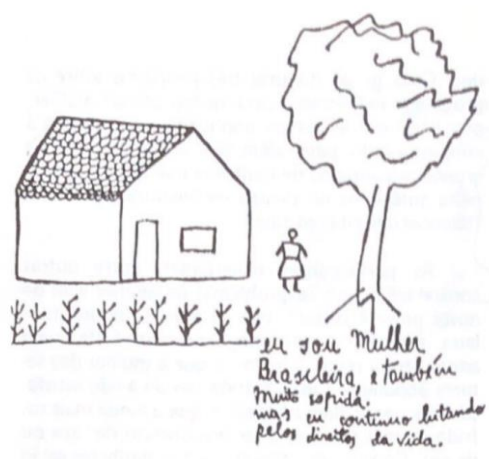 eu sou Mulher
Brasileira, e também
muito sofrida.
mas eu continuo lutando
pelos direitos da vida.